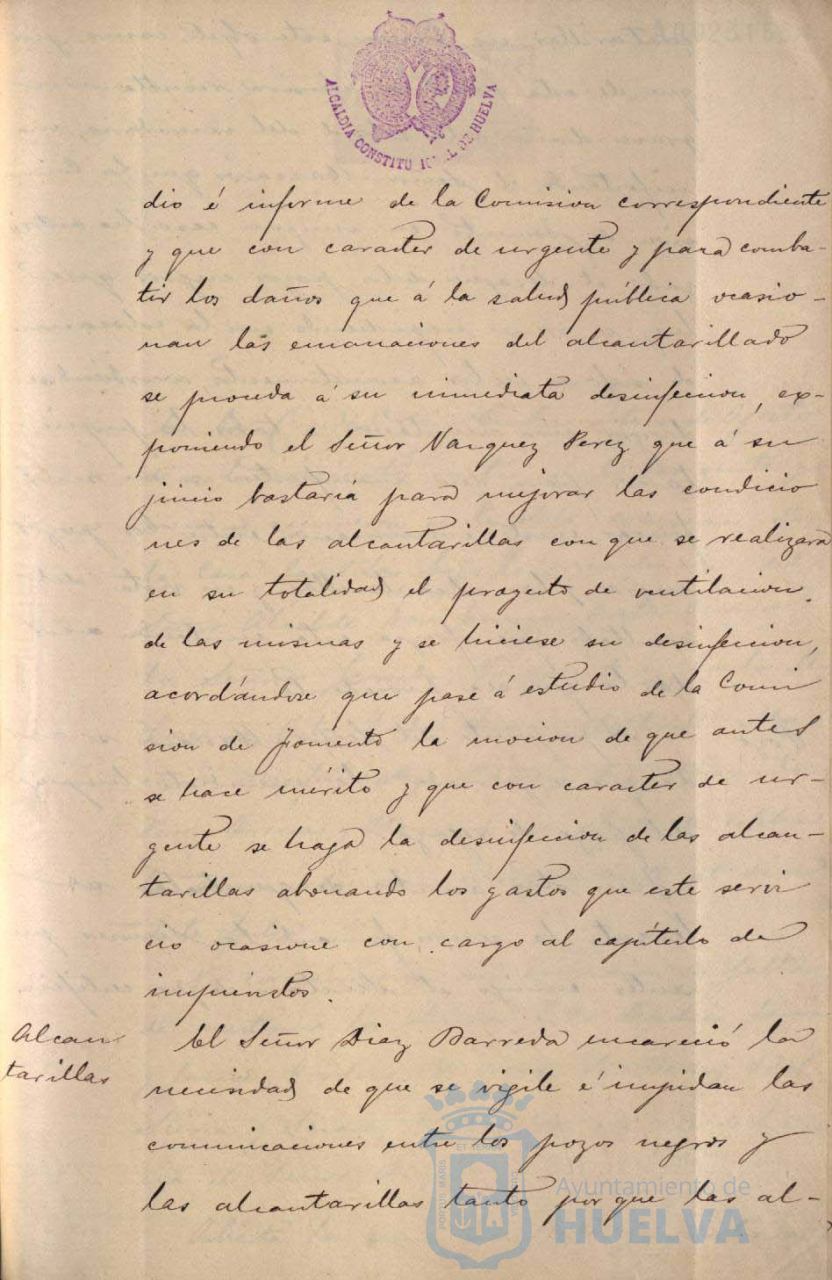 ALCALDIA CONSTITUCIONAL DE HUELVA
dio é informe de la Comision correspondiente
y que con caracter de urgente y para comba-
tir los daños que á la salud pública ocasio-
nan las emanaciones del alcantarillado
se proceda á su inmediata desinfeccion, ex-
poniendo el Señor Vazquez Perez que á su
juicio bastaria para mejorar las condicio
nes de las alcantarillas con que se realizara
en su totalidad el proyecto de ventilacion
de las mismas y se hiciese su desinfeccion,
acordándose que pase á estudio de la Comi
sion de Fomento la mocion de que antes
se hace mérito y que con caracter de ur-
gente se haga la desinfeccion de las alcan-
tarillas abonando los gastos que este servi
cio ocasione con cargo al capítulo de
imprevistos.
Alcan
tarillas
El Señor Diaz Barreda encareció la
necesidad de que se vigile é impidan las
comunicaciones entre los pozos negros y
las alcantarillas tanto por que las al-
Ayuntamiento de
HUELVA